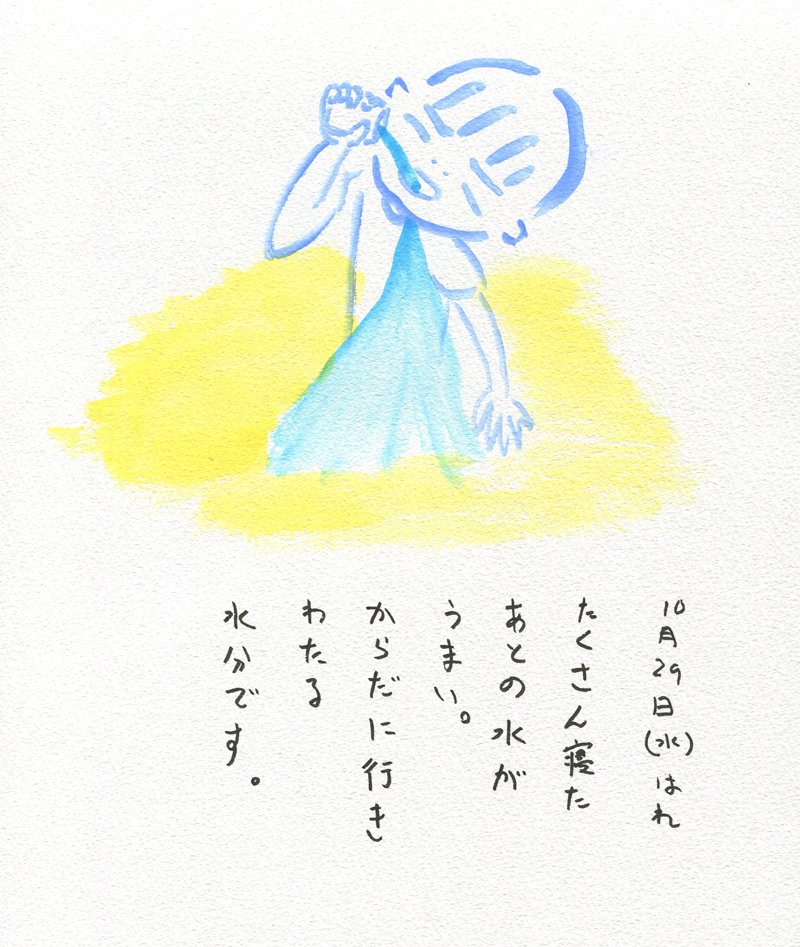 10月29日(水)はれ
たくさん寝た
あとの水が
うまい。
からだに行き
わたる
水分です。